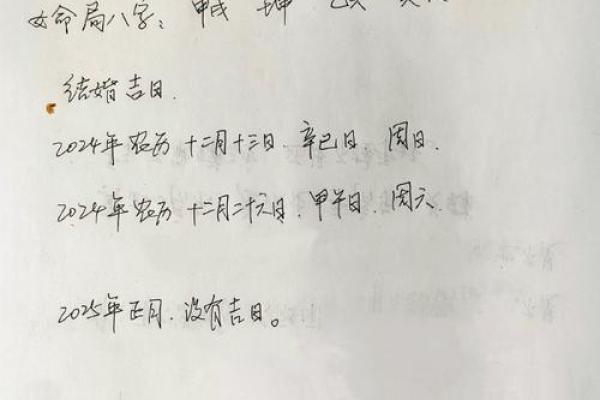 女命局八字：甲戌
结婚吉日.
2024年农历十二月十三日. 辛巳日. 周日.
2024年农历十二月二十六日. 甲午日. 周六.
2025年正月. 没有吉日。